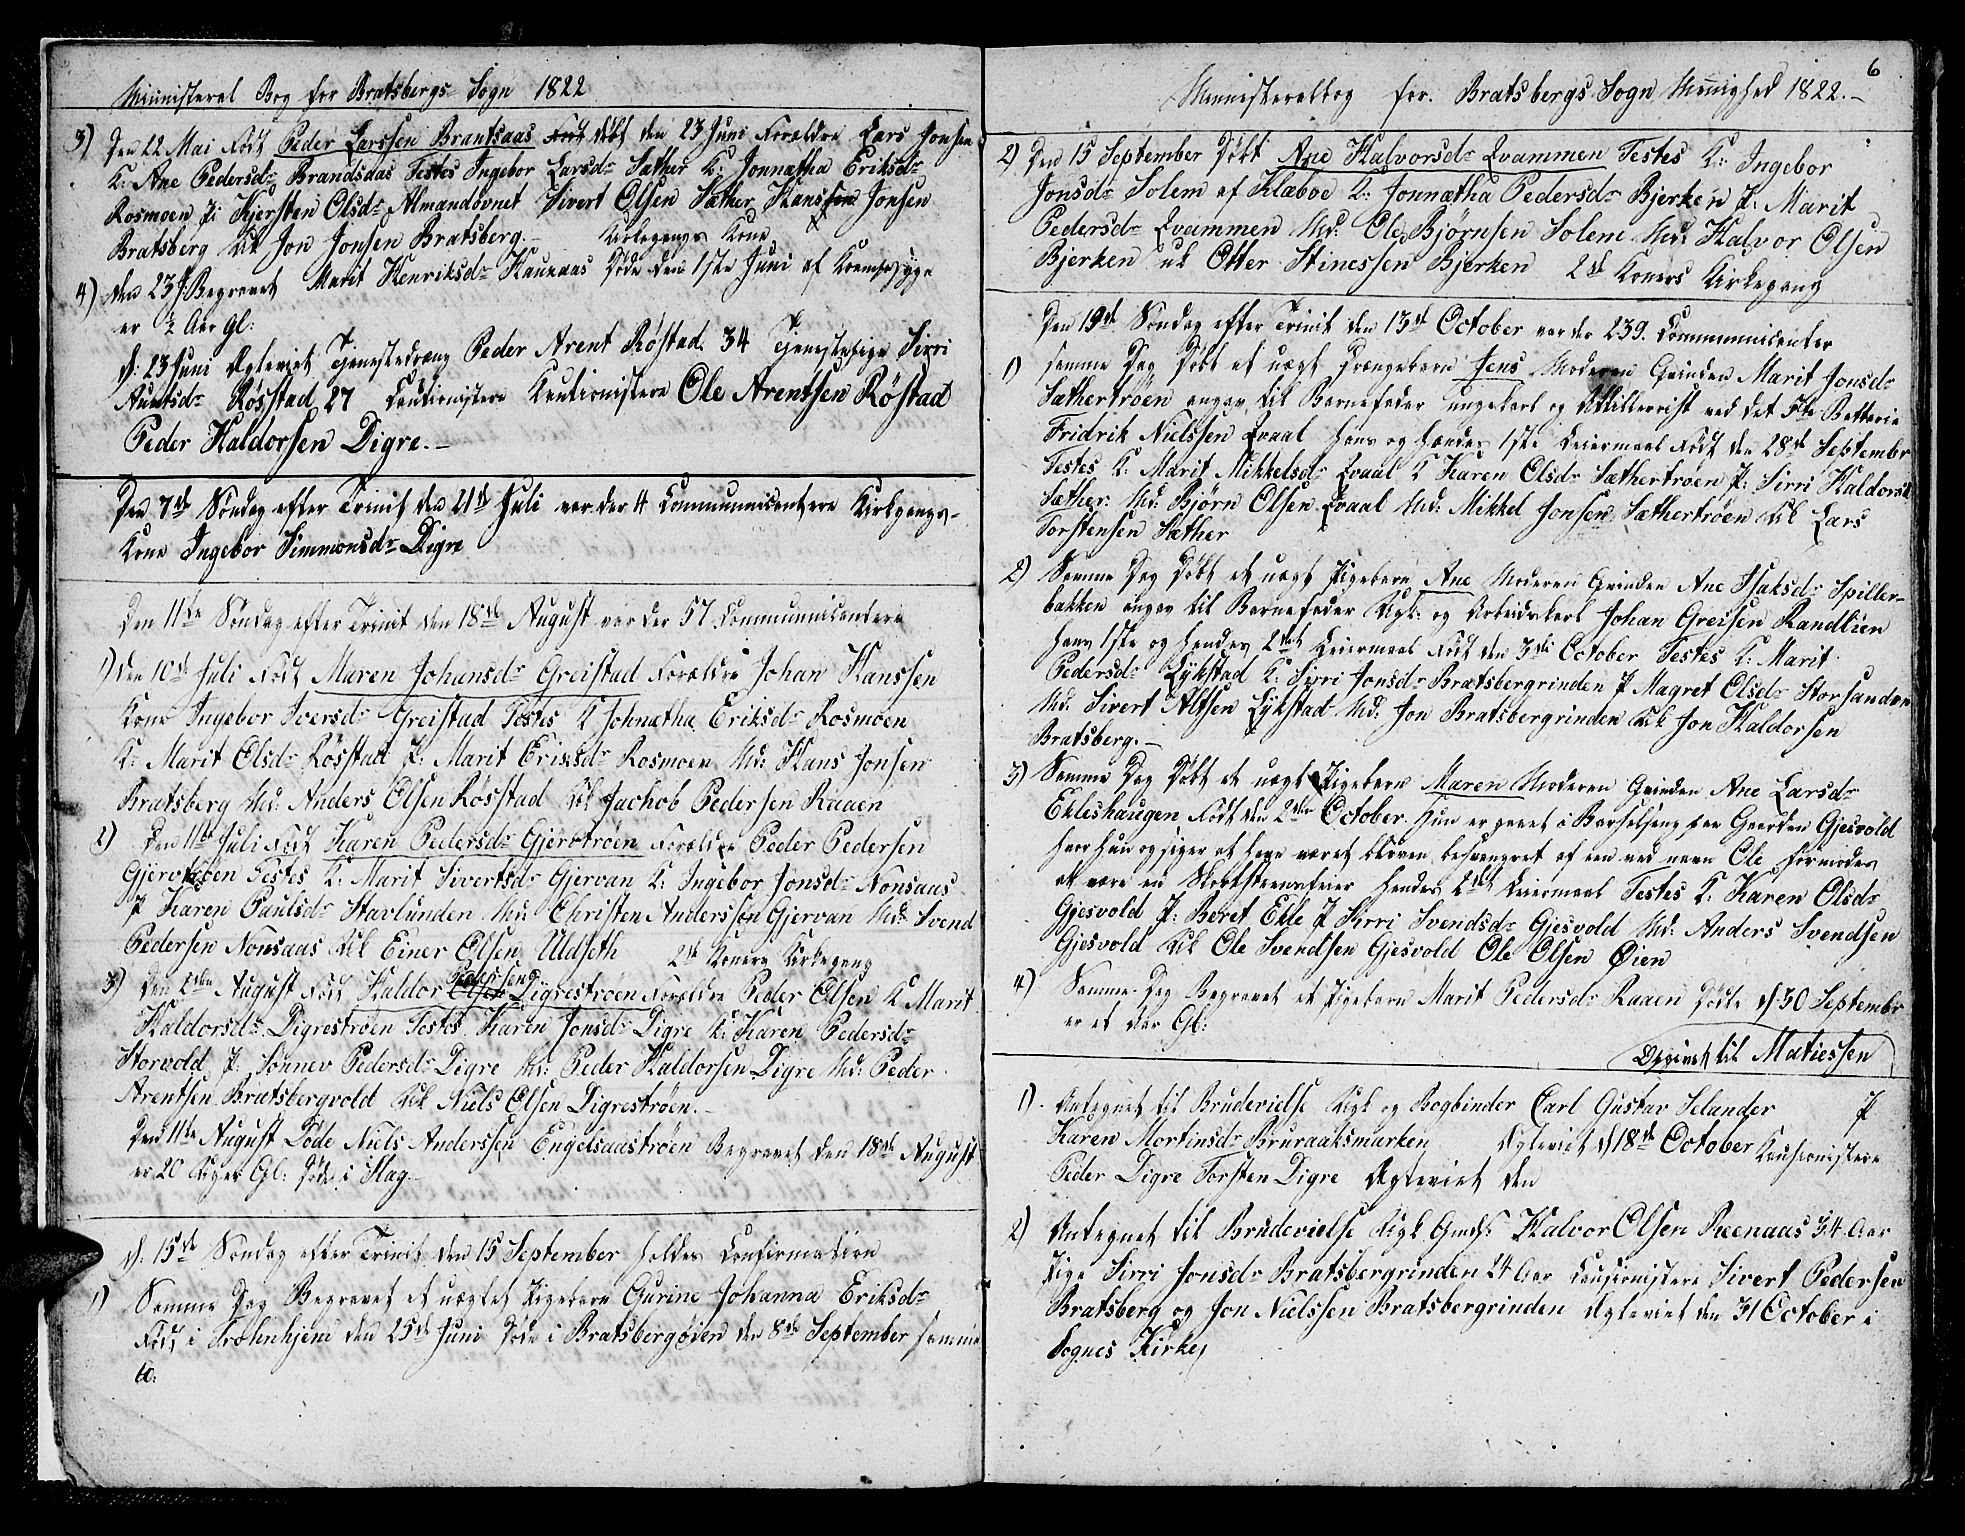 Ministeral Bog for Bratsbergs Sogn 1822
3) Den 22 Mai Født Peder Larssen Brantsaas døbt den 23 Juni Forældre Lars Jonsen
K: Ane Pedersdr Brandsaas Testes Ingebor Larsdr Sæther K: Jonnætha Eriksdr
Rosmoen P: Kjersten Olsdr Almandbvnet Sivert Olsen Sæther Hans Jonsen
Bratsberg Uk Jon Jonsen Bratsberg.– Kirkegangs Kone
4) den 23 J: Begravet Marit Henriksdr Haunaas Døde den 1ste Juni af
er ½ Aar gl:
d: 23 Juni Ægteviet Tjenestedreng Peder Arent Røstad 34 Tjenestepige Sirri
Arntsdr Røsstad 27 Kautionistere Ole Arentsen Røstad
Peder Haldorsen Digre.–
Den 7de Søndag efter Trinit den 21de Juli var der 4 Communicentere Kirkgangs-
Kone Ingebor Simmonsdr Digre
Den 11te Søndag efter Trinit den 18de August var der 57 Communicentere
1) Den 10de Juli Født Maren Johansdr Greistad Forældre Johan Hanssen
Kone Ingebor Iversdr Greistad Testes K Johnætha Eriksdr Rosmoen
K: Marit Olsdr Røsstad P: Marit Erixsdr Rosmoen Md: Hans Jonsen
Bratsberg Md: Anders Olsen Røsstad Uk Jachob Pedersen Raaen
2) Den 11te Juli Født Karen Pedersdr Gjervtrøen Forældre Peder Pedersen
Testes K: Marit Sivertsdr Gjervan K: Ingebor Jonsdr Nonsaas
P Karen Paulsdr Stavlunden Md: Christen Anderssen Gjervan Md: Svend
Pedersen Nonsaas Uk Einer Olsen Uldseth 2de Koners Kirkegang
3) Den 2den August Født Haldor Pedersen Digrestrøen Forældre Peder Olsen K: Marit
Haldorsdr Digrestrøen Testes Karen Jonsdr Digre K: Karen Pedersdr
Storvold P: Sonnev Pedersdr Digre Md: Peder Haldorsen Digre Md: Peder
Arentsen Bratsbergvold Uk Niels Olsen Digrestrøen.–
Den 11te August Døde Niels Anderssen Engelsaastrøen Begravet den 18de August
er 20 Uger Gl: Døde i Slag.–
d: 15de Søndag efter Trinit den 15 September holdes Confirmation
1) Samme Dag Begravet et uægtet Pigebarn Gurine Johanna Eriksdr
Født i Trohnhjem den 25de Juni Døde i Bratsbergøien den 8de September samme
A:
6
Ministeralbog for. Bratsbergs Sogn Menighed 1822.–
2) Den 15 September Døbt Ane Halvorsdr Qvammen Testes K: Ingebor
Jonsdr Solem af Klæboe K: Jonnætha Pedersdr Bjerken P: Marit
Pedersdr Qvammen Md: Ole Bjørnsen Solem Md: Halvor Olsen
Bjerken uk Otter Stinessen Bjerken 2de Koners Kirkegang
Den 19de Søndag efter Trinit den 13de October var der 239. Communicenter
1) samme Dag Døbt et uægt Drengebarn Jens Moderen Qvinden Marit Jonsdr
Sæthertrøen angav til Barnefader ungekarl og Artillerist ved det 5te Batterie
Fridrik Nielssen Qvaal hans og hendes 1ste Leiermaal Født den 28de Septembr
Testes K: Marit Mikkelsdr Qvaal K Karen Olsdr Sæthertrøen P: Sirri Haldorsdr
Sæther. Md: Bjørn Olsen Qvaal Md: Mikkel Jonsen Sæthertrøen Uk Lars
Torstensen Sæther
2) Samme Dag Døbt et uægt Pigebarn Ane Moderen Qvinden Ane Isaksdr Spiller-
bakken angav til Barnefader Ugk: og Arbeidskarl Johan Greisen Randlien
hans 1ste og hendes 2det Leiermaal Født den 3die October Testes K: Marit
Pedersdr Lykstad K: Sirri Jonsdr Bratsbergrinden P Magret Olsdr Storsandøn
Md: Sivert Altsen Lykstad Md: Jon Bratsbergrinden Uk Jon Haldorsen
Bratsberg.–
3) Samme Dag Døbt et uægt Pigebarn Maren Moderen Qvinden Ane Larsdr
Ekleshaugen Født den 2den October. hun er paa Gaarden Gjesvold
hvor hun og siger at have været bleven besvangret af en ved navn Ole formodes
at være en Skorsteensfeier hendes 2det Leiermaal Testes K: Karen Olsdr
Gjesvold P: Beret Ekle P Sirri Svendsdr Gjesvold Md: Anders Svendsen
Gjesvold Uk Ole Svendsen Gjesvold Ole Olsen Øien
4) Samme Dag Begravet et Pigebarn Marit Pedersdr Raaen Døde d 30 Septembr
er et Aar Gl:
Opgivet til Matiessen
1) Antegnet til Brudevielse Ugk og Bogbinder Carl Gustav Selander P
Karen Mortinsdr Bruraaksmarken Ægteviet d 18de October Kautionistere
Peder Digre Torsten Digre Ægteviet den
2) Antegnet til Brudevielse Ugk Gmds. Halvor Olsen Reenaas 34 Aar
Pige Sirri Jonsdr Bratsbergrinden 24 Aar Kautionistere Sivert Pedersen
Bratsberg og Jon Nielssen Bratsbergrinden Ægteviet den 31 October i
Sognes Kirke,